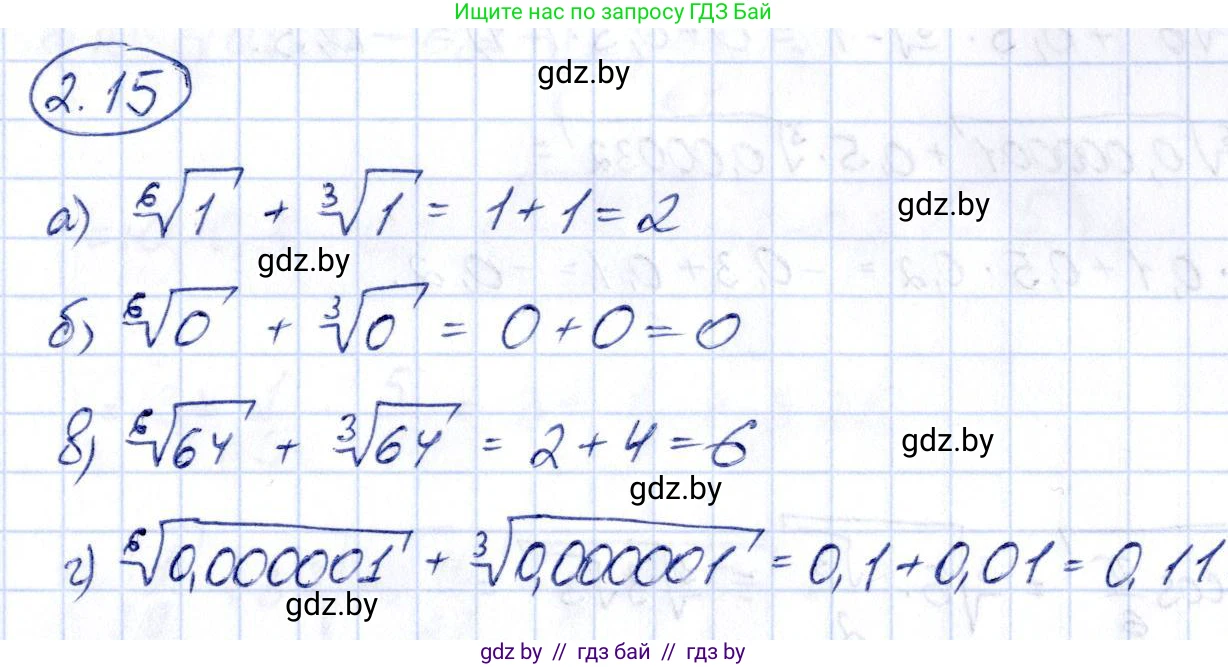 Ищите нас по запросу ГДЗ Бай
2.15
gdz.by
а) ⁶√1 + ³√1 = 1 + 1 = 2
gdz.by
gdz.by
б) ⁶√0 + ³√0 = 0 + 0 = 0
в) ⁶√64 + ³√64 = 2 + 4 = 6
gdz.by
gdz.by
г) ⁶√0,000001 + ³√0,000001 = 0,1 + 0,01 = 0,11
gdz.by
gdz.by // гдз бай // gdz.by